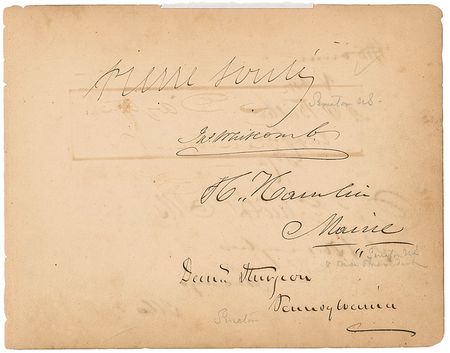 Pierre Soulé
Senator U.S.
Jas Whitcomb.
H. Hamlin
Maine
Senator
Danl Sturgeon
Pennsylvania
Senator